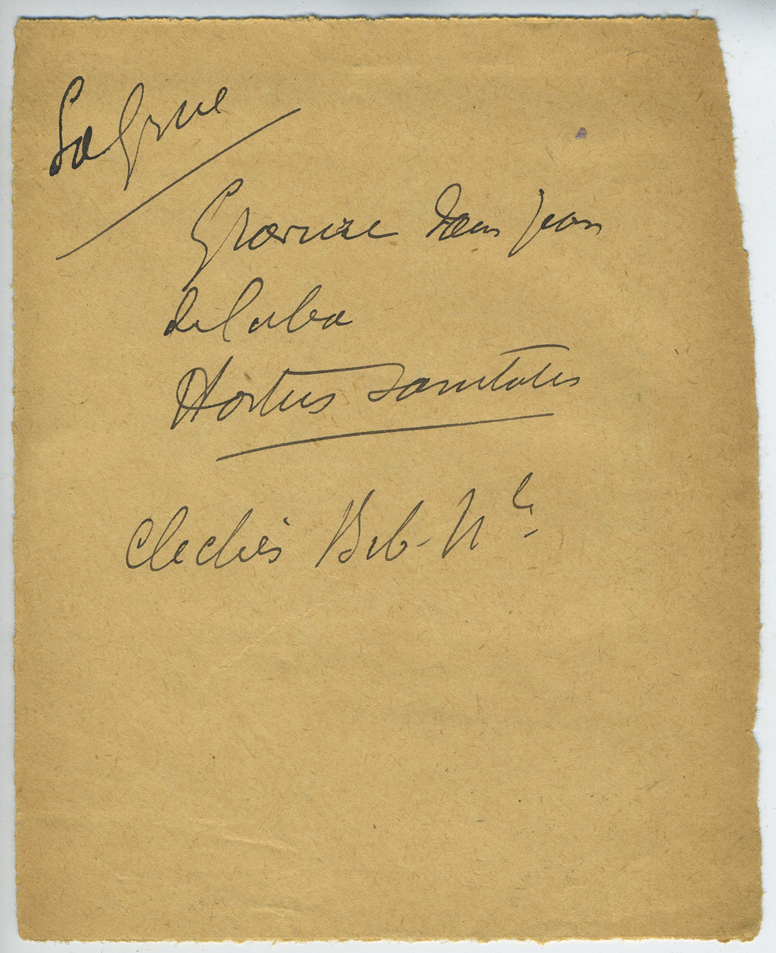 La Grue
Gravure dans Jean
de Cuba
Hortus Sanitatis
Clichés Bib-Nle-